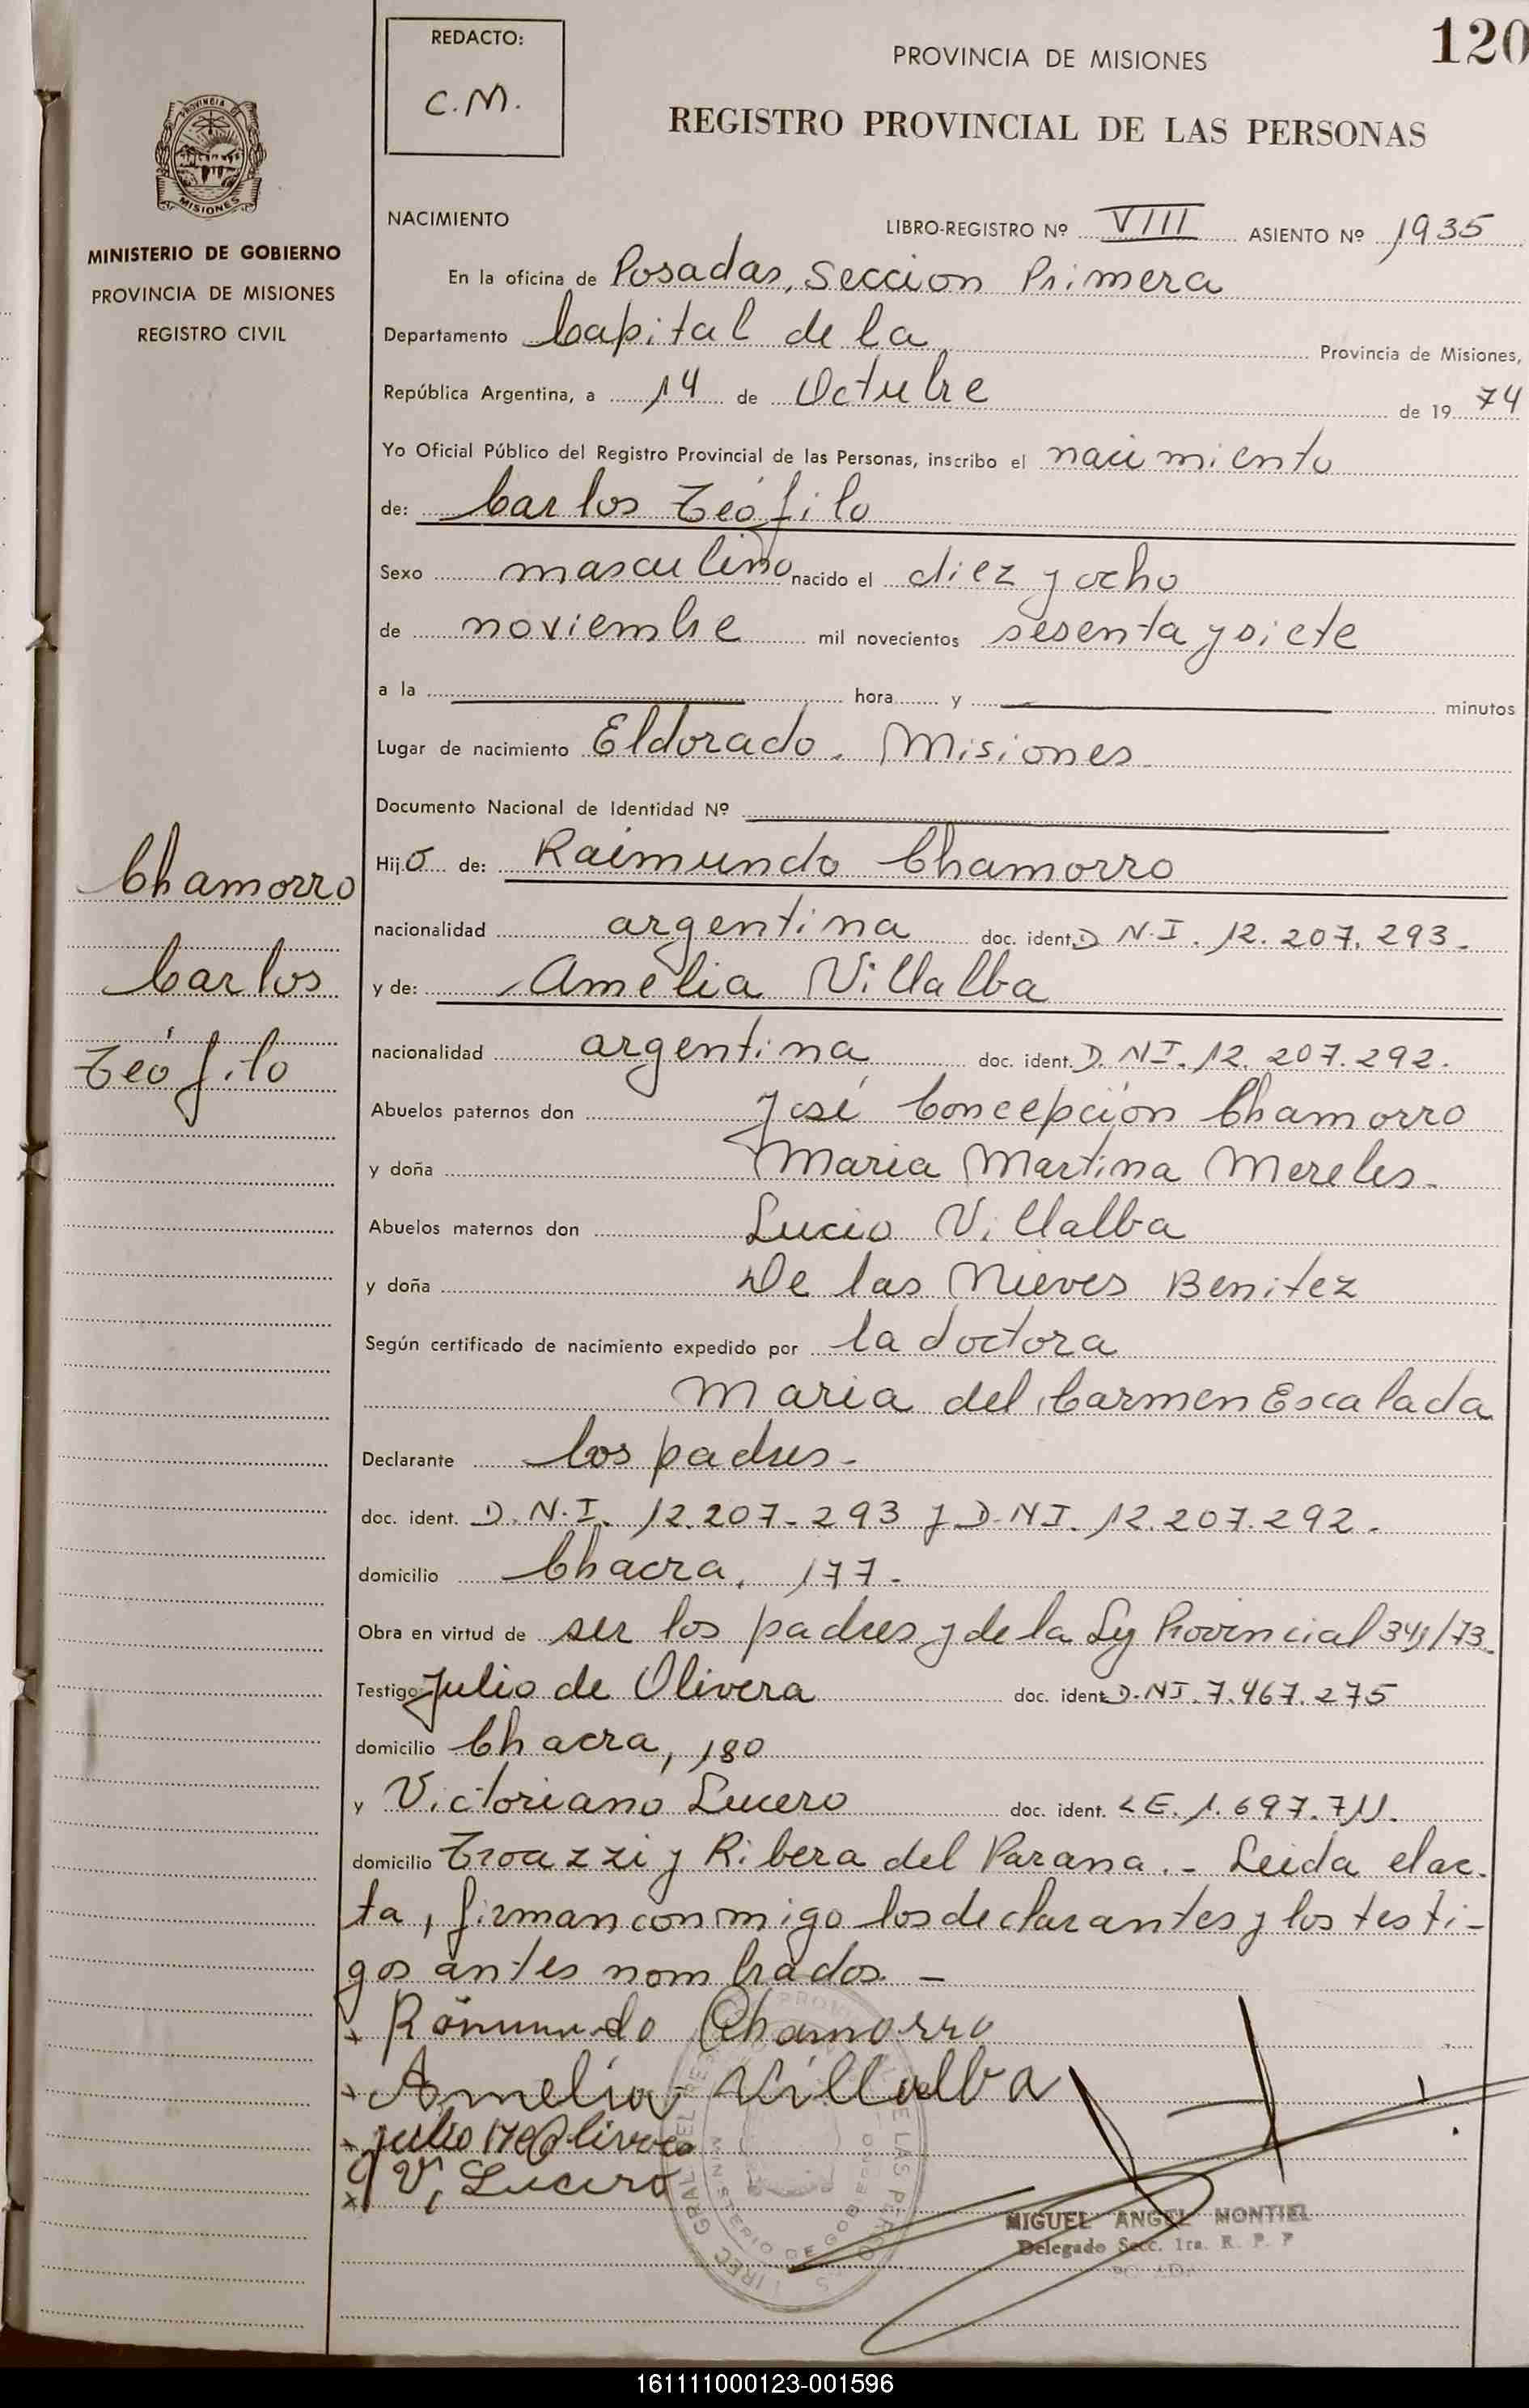 120
REDACTO:
C.M.
PROVINCIA DE MISIONES
REGISTRO PROVINCIAL DE LAS PERSONAS
PROVINCIA DE
MISIONES
MINISTERIO DE GOBIERNO
PROVINCIA DE MISIONES
REGISTRO CIVIL
NACIMIENTO LIBRO-REGISTRO Nº VIII ASIENTO Nº 1935
En la oficina de Posadas, Seccion Primera
Departamento Capital de la Provincia de Misiones,
República Argentina, a 14 de Octubre de 19 74
Yo Oficial Público del Registro Provincial de las Personas, inscribo el nacimiento
de: Carlos Teófilo
Sexo masculino nacido el diez y ocho
de noviembre mil novecientos sesenta y siete
a la hora y minutos
Lugar de nacimiento Eldorado. Misiones.
Documento Nacional de Identidad Nº
Hijo de: Raimundo Chamorro
nacionalidad argentina doc. ident. D.N.I. 12.207.293.-
y de: Amelia Villalba
nacionalidad argentina doc. ident. D.NI. 12.207.292.
Abuelos paternos don José Concepción Chamorro
y doña Maria Martina Mereles.
Abuelos maternos don Lucio Villalba
y doña De las Nieves Benitez
Según certificado de nacimiento expedido por la doctora
Maria del Carmen Escalada
Declarante los padres.-
doc. ident. D.N.I. 12.207.293 y D.NI. 12.207.292.
domicilio Chacra, 177.
Obra en virtud de ser los padres y de la Ley Provincial 341/73.
Testigo: Julio de Olivera doc. ident. D.NI. 7.467.275
domicilio Chacra, 180
y Victoriano Lucero doc. ident. LE. 1.697.711.
domicilio Troazzi y Ribera del Parana.- Leida el ac-
ta, firman conmigo los declarantes y los testi-
gos antes nombrados.-
Chamorro
Carlos
Teófilo
Chamorro
Amelia Villalba
Julio
V. Lucero
MIGUEL ANGEL MONTIEL
Delegado Secc. 1ra. R. P. P
161111000123-001596